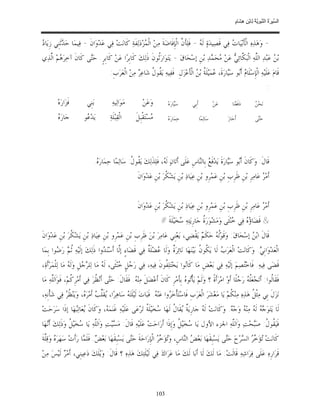 السيرة النبوية لابن هشام
- وَهَذِهِ الْأَبْيَاتُ فِي قَصِيدَةٍ لَهُ - فَلِأَنّ الْإِفَاضَةَ مِنْ الْمُزْدَلِفَةِ كَانَتْ فِي عَدْوَانَ - فِيمَا حَدّثَنِي زِيَادُ
بْنُ عَبْدِ اللّهِ الْبَكّائِيّ عَنْ مُحَمّدِ بْنِ إسْحَاقَ - يَتَوَارَثُونَ ذَلِكَ كَابِرًا عَنْ كَابِرٍ حَتّى كَانَ آخِرَهُمْ الّذِي
قَامَ عَلَيْهِ الْإِسْلَامُ أَبُو سَيّارَةَ، عُمَيْلَةُ بْنُ الْأَعْزَلِ فَفِيهِ يَقُولُ شَاعِرٌ مِنْ الْعَرَبِ
نَحْنُ دَفَعْنَا عَنْ أَبِي سَيّارَهْ وَعَنْ مَوَالِيهِ بَنِي فَزَارَهْ
حَتّى أَجَازَ سَالِمًا حِمَارَهْ مُسْتَقْبِلَ الْقِبْلَةِ يَدْعُو جَارَهْ
قَالَ وَكَانَ أَبُو سَيّارَةَ يَدْفَعُ بِالنّاسِ عَلَى أَتَانٍ لَهُ، فَلِذَلِكَ يَقُولُ سَالِمًا حِمَارَهْ
أَمْرُ عَامِرِ بْنِ ظَرِبِ بْنِ عَمْرِو بْنِ عِيَاذِ بْنِ يَشْكُرَ بْنِ عَدْوَانَ
أَمْرُ عَامِرِ بْنِ ظَرِبِ بْنِ عَمْرِو بْنِ عِيَاذِ بْنِ يَشْكُرَ بْنِ عَدْوَانَ
قَضَاؤُهُ فِي خُنْثَى وَمَشُورَةُ جَارِيَتِهِ سُخَيْلَةَ
قَالَ ابْنُ إسْحَاقَ وَقَوْلُهُ حَكَمٌ يَقْضِي، يَعْنِي عَامِرَ بْنَ ظَرِبِ بْنِ عَمْرِو بْنِ عِيَاذِ بْنِ يَشْكُرَ بْنِ عَدْوَانَ
الْعَدْوَانِيّ وَكَانَتْ الْعَرَبُ لَا يَكُونُ بَيْنَهَا نَائِرَةٌ وَلَا عُضْلَةٌ فِي قَضَاءٍ إلّا أَسْنَدُوا ذَلِكَ إلَيْهِ ثُمّ رَضُوا بِمَا
قَضَى فِيهِ فَاخْتُصِمَ إلَيْهِ فِي بَعْضِ مَا كَانُوا يَخْتَلِفُونَ فِيهِ، فِي رَجُلٍ خُنْثَى، لَهُ مَا لِلرّجُلِ وَلَهُ مَا لِلْمَرْأَةِ،
فَقَالُوا: أَتَجْعَلُهُ رَجُلًا أَوْ امْرَأَةً ؟ وَلَمْ يَأْتُوهُ بِأَمْرٍ كَانَ أَعْضَلَ مِنْهُ فَقَالَ حَتّى أَنْظُرَ فِي أَمْرِكُمْ، فَوَاَللّهِ مَا
نَزَلَ بِي مِثْلُ هَذِهِ مِنْكُمْ يَا مَعْشَرَ الْعَرَبِ فَاسْتَأْخَرُوا عَنْهُ فَبَاتَ لَيْلَتَهُ سَاهِرًا، يُقَلّبُ أَمْرَهُ، وَيَنْظُرُ فِي شَأْنِهِ،
لَا يَتَوَجّهُ لَهُ مِنْهُ وَجْهٌ وَكَانَتْ لَهُ جَارِيَةٌ يُقَالُ لَهَا سُخَيْلَةُ تَرْعَى عَلَيْهِ غَنَمَهُ، وَكَانَ يُعَاتِبُهَا إذَا سَرَحَتْ
فَيَقُولُ صَبّحْتِ وَاَللّهِ الجزء الأول يَا سُخَيْلُ وَإِذَا أَرَاحَتْ عَلَيْهِ قَالَ مَسّيْتِ وَاَللّهِ يَا سُخَيْلُ وَذَلِكَ أَنّهَا
كَانَتْ تُؤَخّرُ السّرْحَ حَتّى يَسْبِقَهَا بَعْضُ النّاسِ، وَتُؤَخّرُ الْإِرَاحَةَ حَتّى يَسْبِقَهَا بَعْضٌ فَلَمّا رَأَتْ سَهَرَهُ وَقِلّةَ
قَرَارِهِ عَلَى فِرَاشِهِ قَالَتْ مَا لَك لَا أَبَا لَك مَا عَرَاك فِي لَيْلَتِك هَذِهِ ؟ قَالَ وَيْلَك دَعِينِي، أَمْرٌ لَيْسَ مِنْ
103